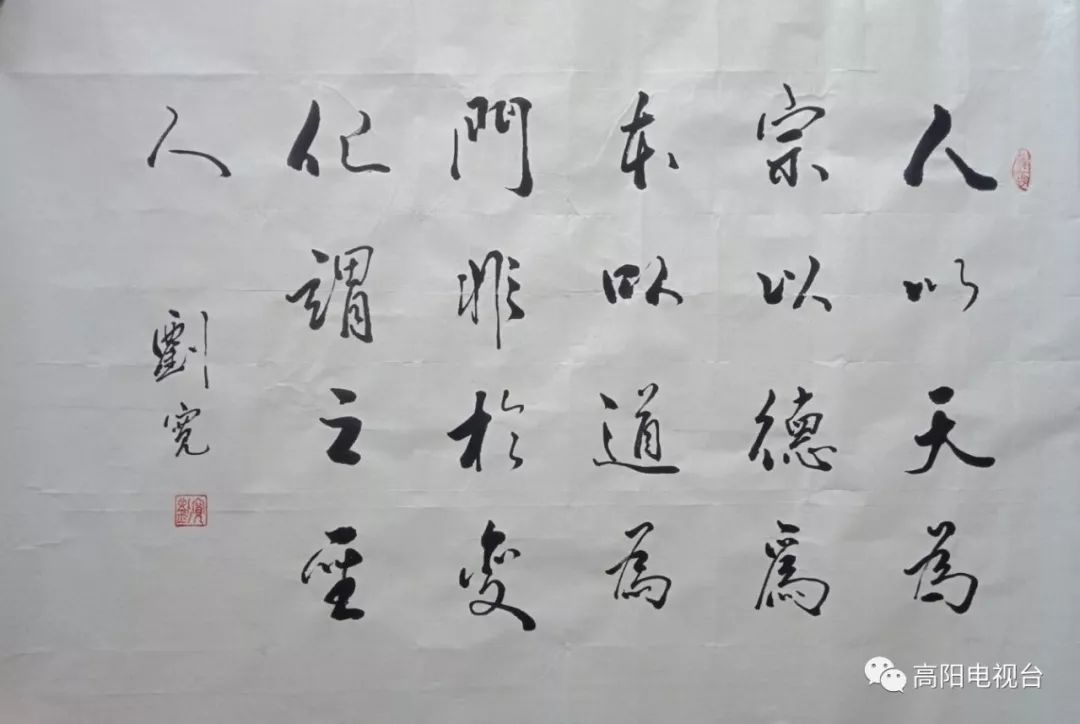 人以天為
宗以德爲
本以道為
門非於變
化謂之聖
人
劉寬
高阳电视台